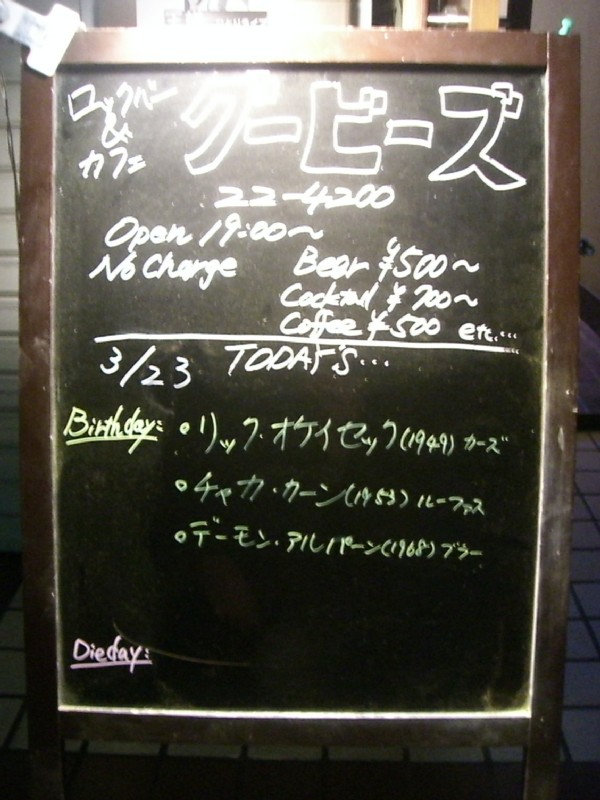 ロックバー
&
カフェ
グービーズ
22-4200
Open 19:00〜
No Charge
Bear ¥500〜
Cocktail ¥700〜
Coffee ¥500 etc...
3/23 TODAY'S...
Birthday:
・リック・オケイセック(1949) カーズ
・チャカ・カーン(1953) ルーファス
・デーモン・アルバーン(1968) ブラー
Dieday: